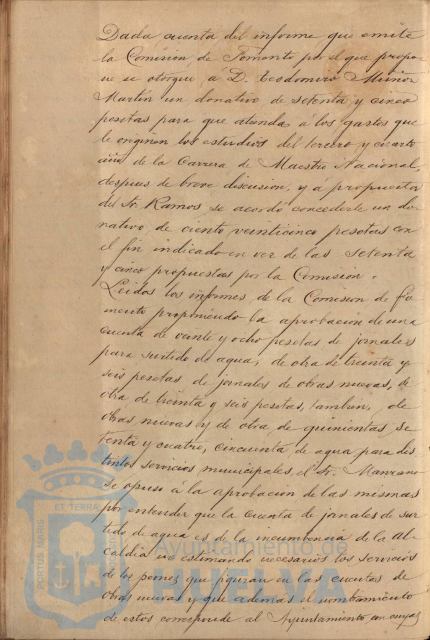 Dada cuenta del informe que emite
la Comisión de Fomento por el que propo-
ne se otorgue a D. Teodomiro Muñoz
Martín un donativo de setenta y cinco
pesetas para que atienda á los gastos que
le originen los estudios del tercero y cuarto
año de la Carrera de Maestro Nacional,
despues de breve discusion, y á propuesta
del Sr. Ramos se acordó concederle un do-
nativo de ciento veinticinco pesetas con
el fin indicado en vez de las setenta
y cinco propuestas por la Comisión.
Leidos los informes de la Comision de Fo-
mento proponiendo la aprobacion de una
cuenta de veinte y ocho pesetas de jornales
para surtido de agua, de otra de treinta y
seis pesetas de jornales de obras nuevas, de
otra de treinta y seis pesetas, tambien, de
obras nuevas y de otra de quinientas se-
tenta y cuatro, cincuenta de agua para dis-
tintos servicios municipales, el Sr. Manzano
se opuso á la aprobacion de las mismas
por entender que la cuenta de jornales de sur-
tido de agua es de la incumbencia de la Al-
caldia no estimando necesarios los servicios
de los peones que figuran en las cuentas de
obras nuevas y que ademas el nombramiento
de estos corresponde al Ayuntamiento en cuyas
PORTUS MARIS
ET TERRA
Ayuntamiento de